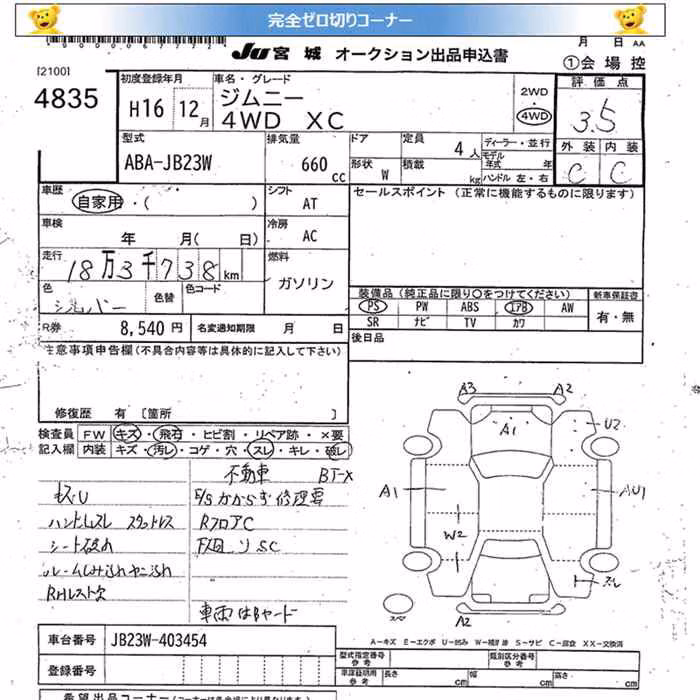 完全ゼロ切りコーナー
0 0 0 0 0 6 7 7 7 4
JU 宮 城 オークション出品申込書
月 日 AA
①会 場 控
[2100]
4835
初度登録年月
H16 12月
車名・グレード
ジムニー
4WD XC
2WD
4WD
評 価 点
3.5
外 装 内 装
C C
型式
ABA-JB23W
排気量
660 cc
ドア
形状 W
定員
4 人
積載
kg
ディーラー・並行
モデル年式 年
ハンドル 左・右
車歴
自家用・( )
シフト
AT
セールスポイント (正常に機能するものに限ります)
車検
年 月( 日)
冷房
AC
走行
18万3千738km
燃料
ガソリン
色
シルバー
色替
色コード
装備品(純正品に限り○をつけてください)
PS PW ABS エアB AW
SR ナビ TV カワ
新車保証書
有・無
R券 8,540 円 名変通知期限 月 日
後日品
注意事項申告欄(不具合内容等は具体的に記入して下さい)
修復歴 有 [箇所 ]
検査員 FW キズ・飛石・ヒビ割・リペア跡・×要
記入欄 内装 キズ・汚レ・コゲ・穴・スレ・キレ・破レ
不動車 BT-X
キズU
E/Sかからず修理要
ハンドルスレ スタットレス
RフロアC
シート破れ
下回りSC
ルームしみ汚れヤニ汚れ
RHレスト欠
車両はBヤード
A3 A2
A1
U2
A1
AU1
W2
スレ
スペア
A2
車台番号 JB23W-403454
A-キズ E-エクボ U-凹み W-補修跡 S-サビ C-腐食 XX-交換済
登録番号
型式指定番号 参考
類別区分番号 参考
車庫証明用 参考 長さ cm 幅 cm 高さ cm
希望出品コーナー